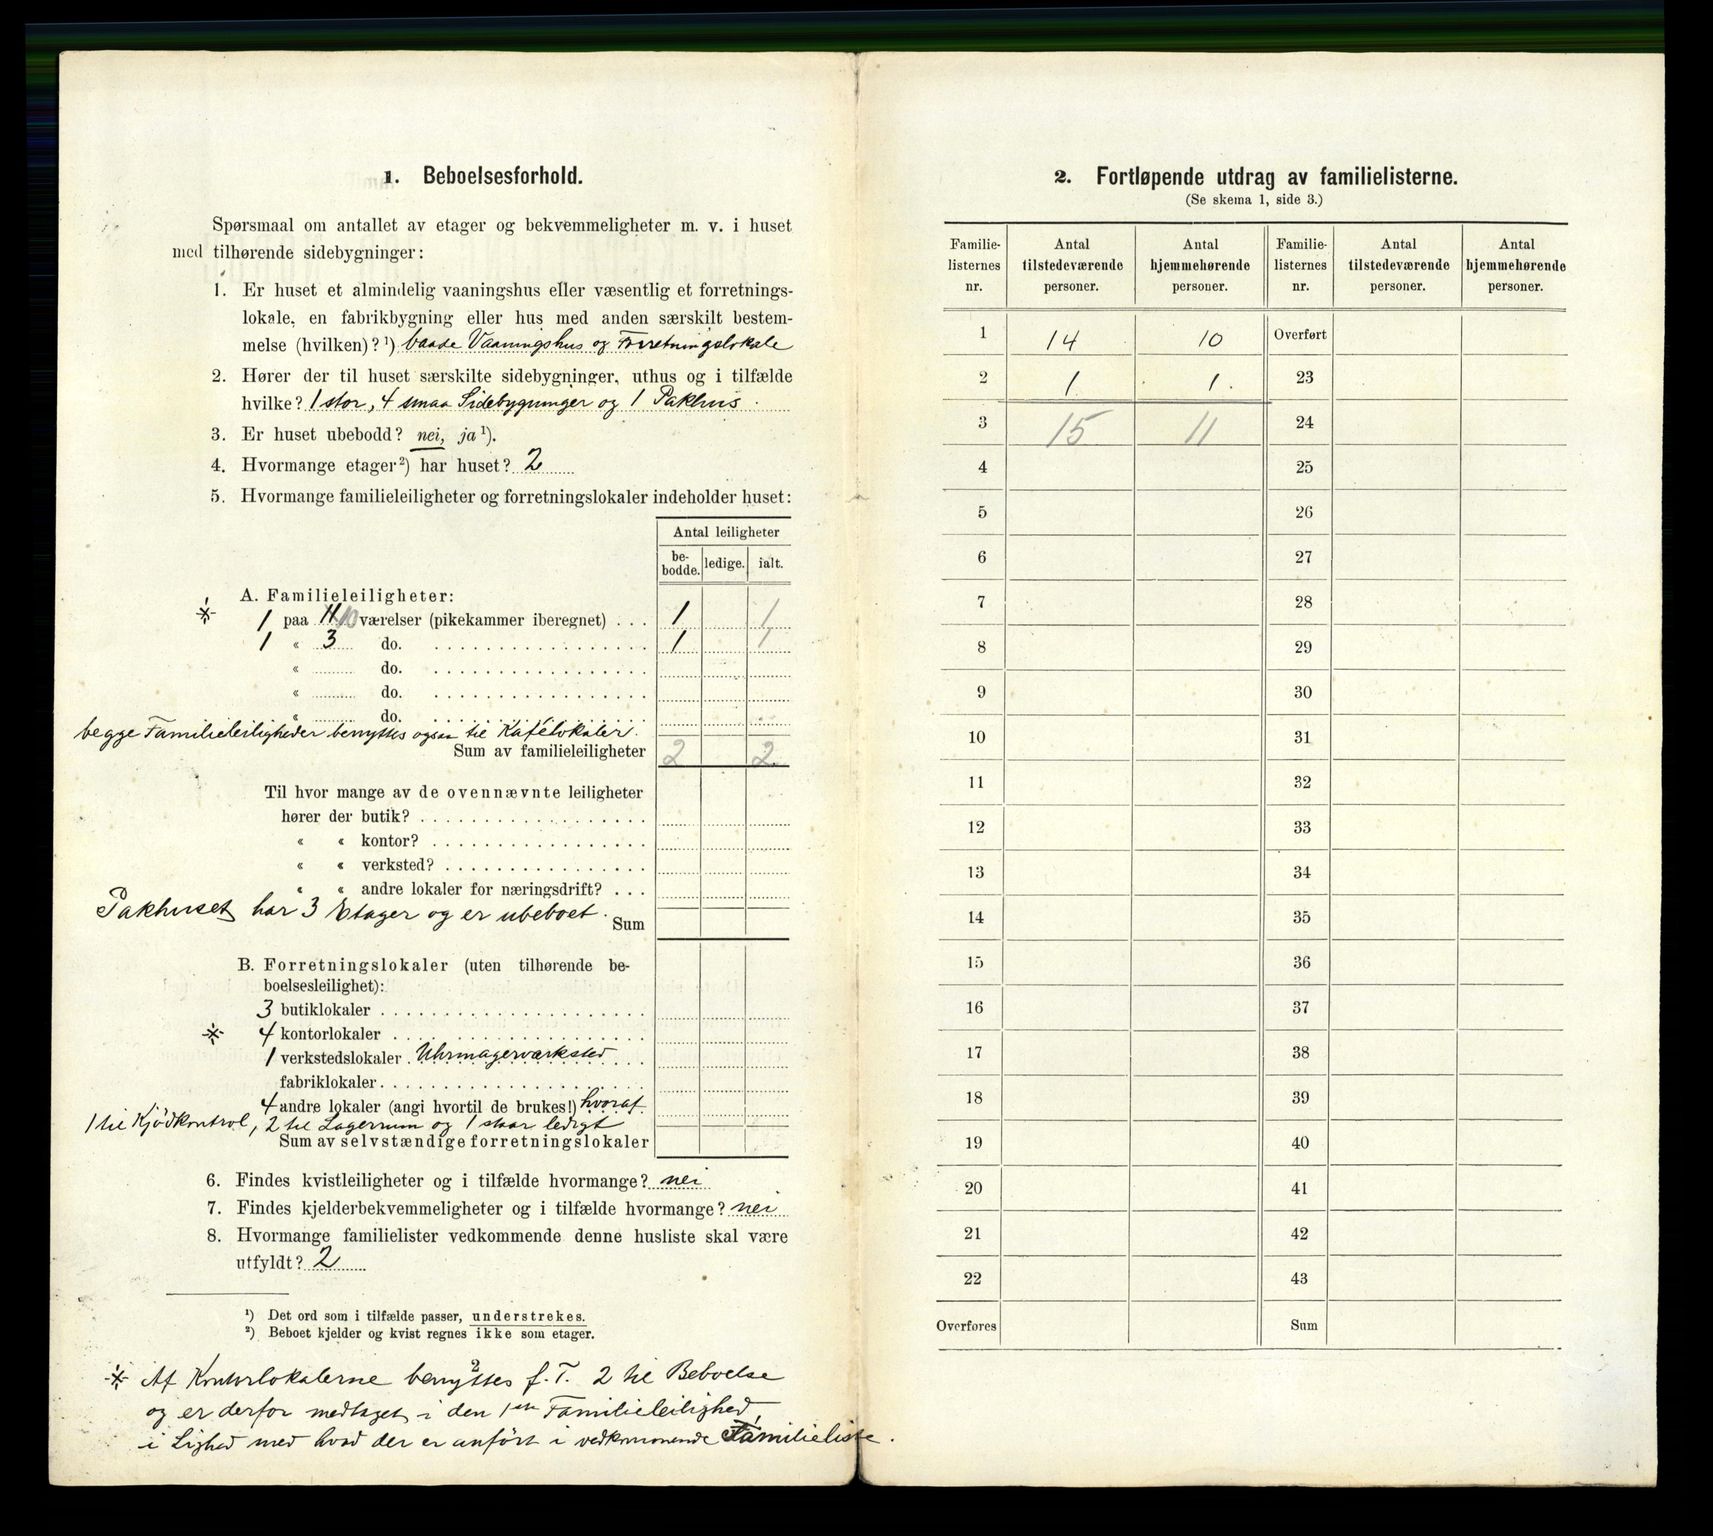 1. Beboelsesforhold.
Spørsmaal om antallet av etager og bekvemmeligheter m. v. i huset
med tilhørende sidebygninger:
1. Er huset et almindelig vaaningshus eller væsentlig et forretnings-
lokale, en fabrikbygning eller hus med anden særskilt bestem-
melse (hvilken)? ¹) baade Vaaningshus og Forretningslokale
2. Hører der til huset særskilte sidebygninger, uthus og i tilfælde
hvilke? 1 stor, 4 smaa Sidebygninger og 1 Pakhus.
3. Er huset ubebodd? nei, ja ¹).
4. Hvormange etager ²) har huset? 2
5. Hvormange familieleiligheter og forretningslokaler indeholder huset:
Antal leiligheter
be-bodde. ledige. ialt.
A. Familieleiligheter:
* 1 paa 11 10 værelser (pikekammer iberegnet) . . . 1 1
1 « 3 do. 1 1
« do.
« do.
« do.
begge Familieleiligheder benyttes ogsaa til Kafélokaler.
Sum av familieleiligheter 2 2.
Til hvor mange av de ovennævnte leiligheter
hører der butik?
« « kontor?
« « verksted?
« « andre lokaler for næringsdrift? . . .
Pakhuset har 3 Etager og er ubeboet.
Sum
B. Forretningslokaler (uten tilhørende be-
boelsesleilighet):
3 butiklokaler
* 4 kontorlokaler
1 verkstedslokaler. Uhrmagerværksted
fabriklokaler
4 andre lokaler (angi hvortil de brukes!) hvoraf
1 til Kjödkontrol, 2 til Lagerrum og 1 staar ledigt
Sum av selvstændige forretningslokaler
6. Findes kvistleiligheter og i tilfælde hvormange? nei
7. Findes kjelderbekvemmeligheter og i tilfælde hvormange? nei
8. Hvormange familielister vedkommende denne husliste skal være
utfyldt? 2
¹) Det ord som i tilfælde passer, understrekes.
²) Beboet kjelder og kvist regnes ikke som etager.
* Af Kontorlokalerne benyttes f. T. 2 til Beboelse
og er derfor medtaget i den 1ste Familieleilighed,
i Lighed med hvad der er anført i vedkommende Familieliste.
2. Fortløpende utdrag av familielisterne.
(Se skema 1, side 3.)
Familie-listernes nr. Antal tilstedeværende personer. Antal hjemmehørende personer. Familie-listernes nr. Antal tilstedeværende personer. Antal hjemmehørende personer.
1 14 10 Overført
2 1 1. 23
3 15 11 24
4 25
5 26
6 27
7 28
8 29
9 30
10 31
11 32
12 33
13 34
14 35
15 36
16 37
17 38
18 39
19 40
20 41
21 42
22 43
Overføres Sum